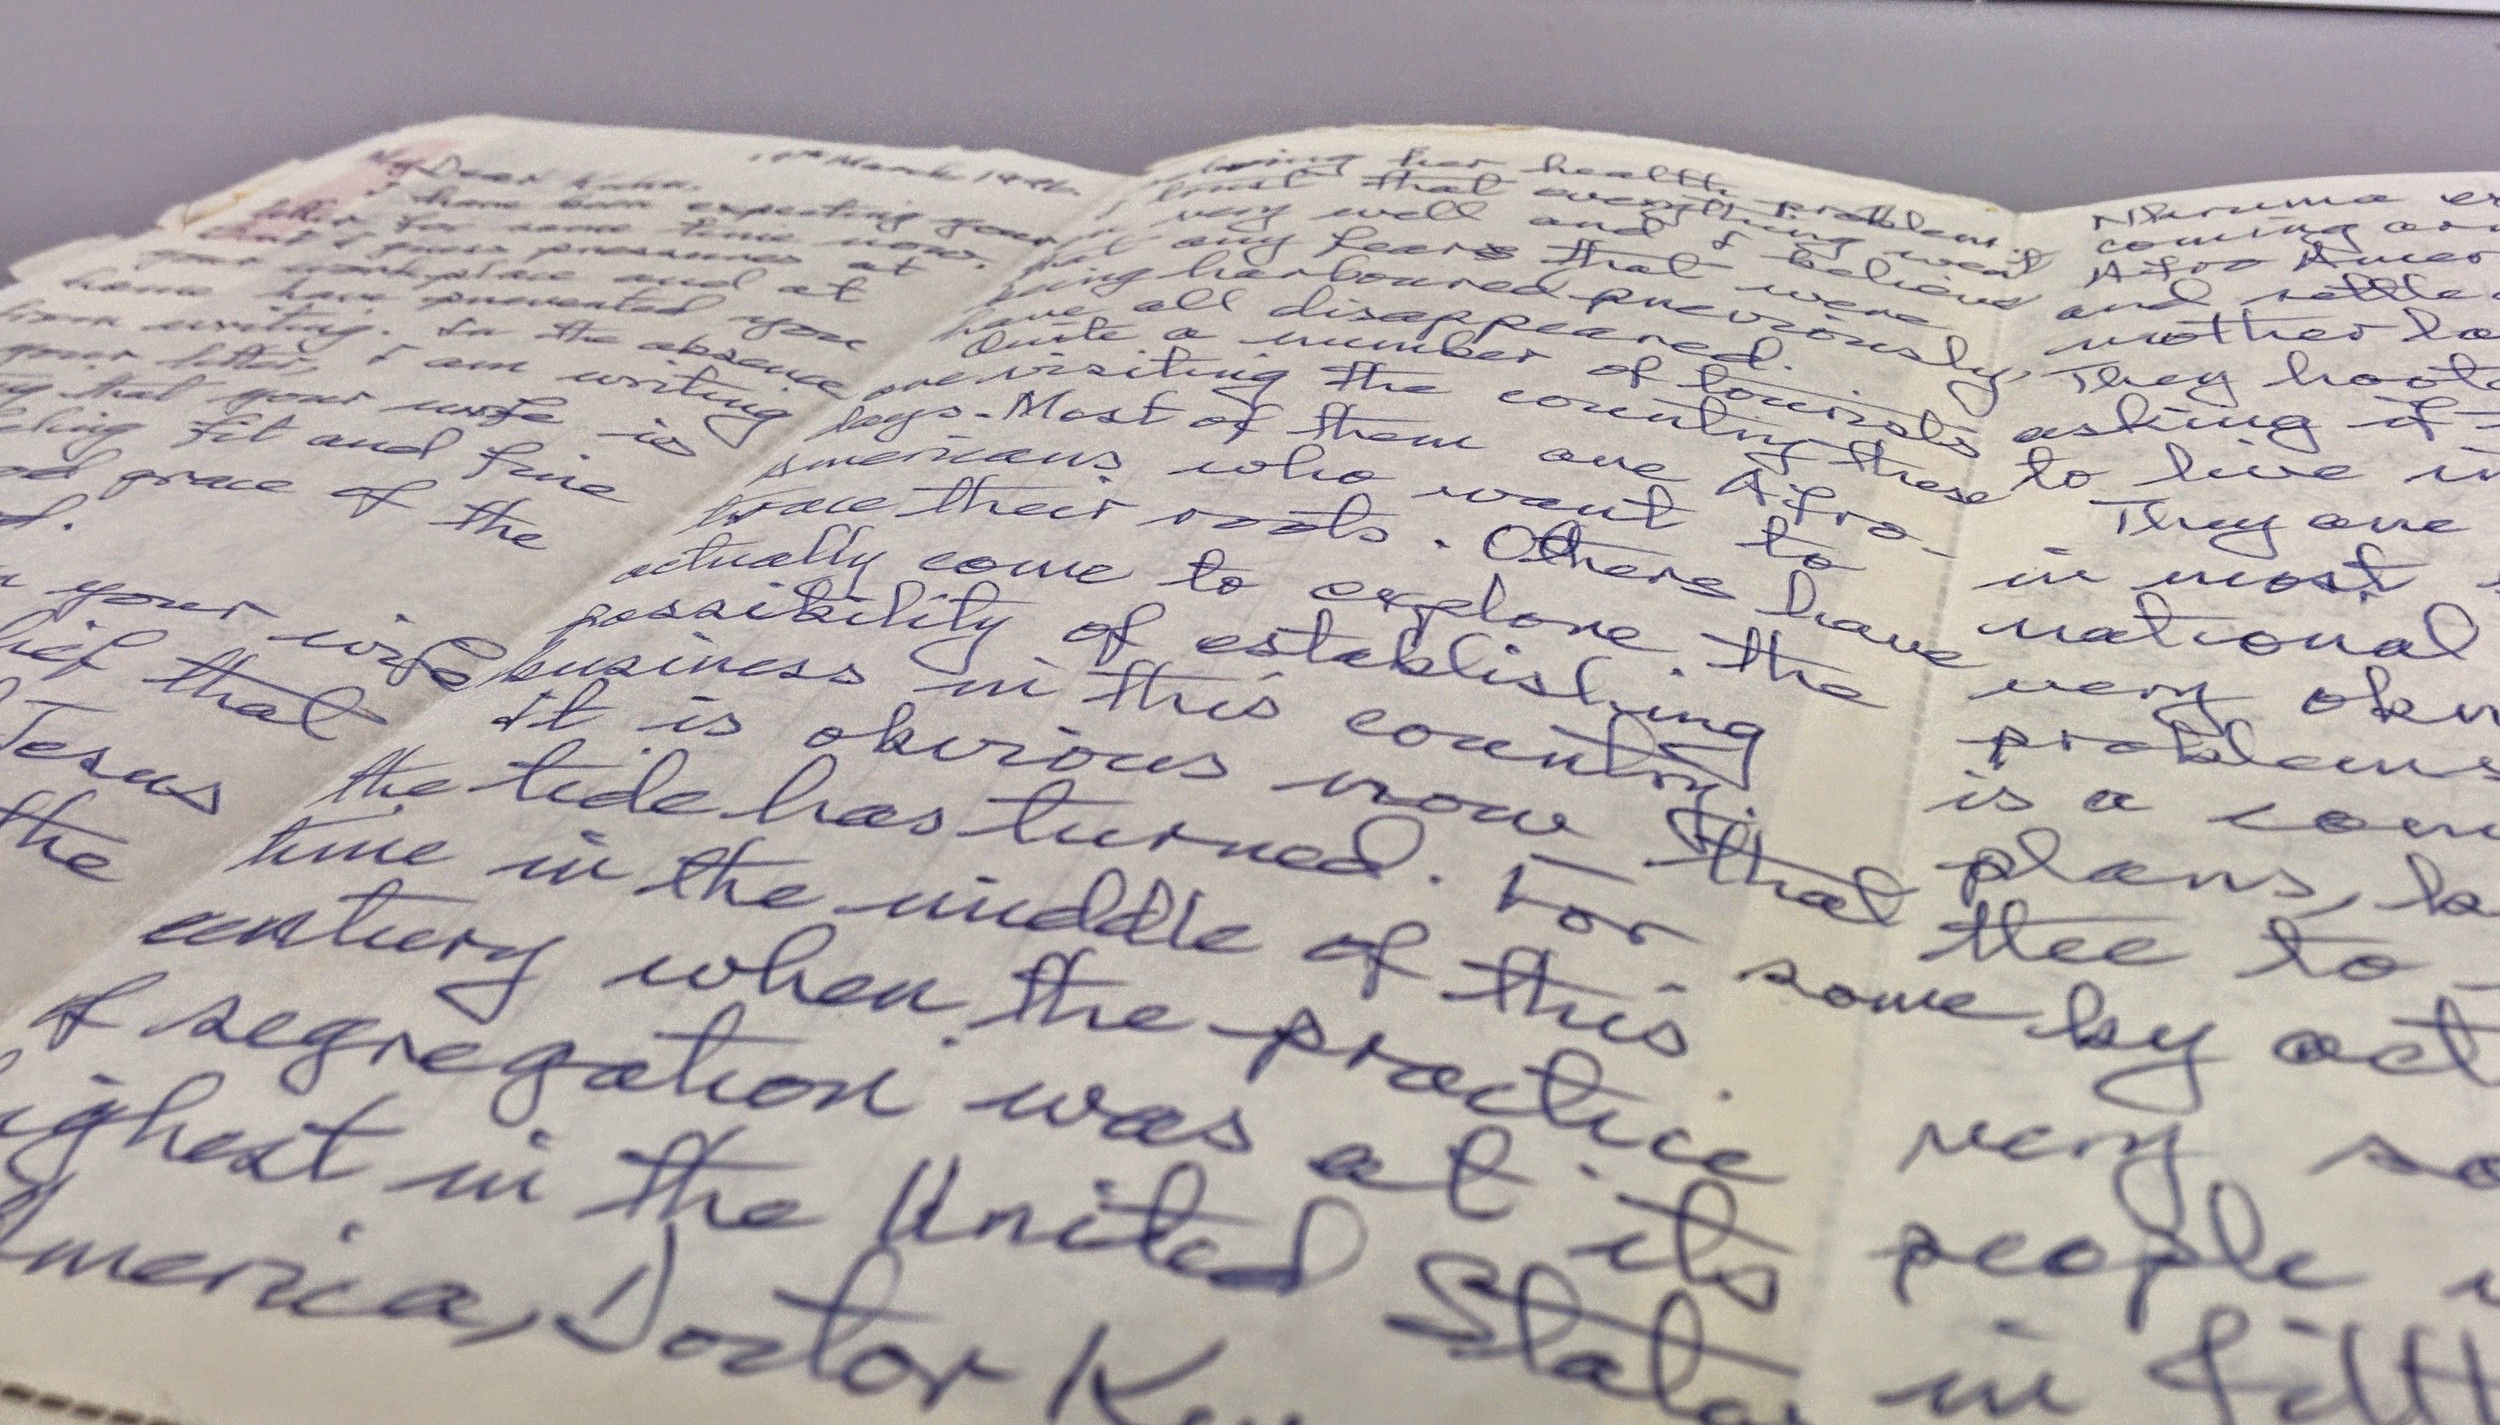 My Dear Kuma,
March
I have been expecting your
letter for some time now.
But I guess pressures at
your workplace and at
home have prevented you
from writing. In the absence
your letter, I am writing
that your wife is
fit and fine
grace of the
your wife
that
Jesus
the
her health problems. I
trust that everything went
very well and I believe
that any fears that were
being harboured previously,
have all disappeared.
Quite a number of tourists
are visiting the country these
days. Most of them are Afro-
Americans who want to
trace their roots. Others have
actually come to explore the
possibility of establishing
business in this country.
It is obvious now that
the tide has turned. For some
time in the middle of this
century when the practice
of segregation was at its
ighest in the United States
America, Doctor
Nkruma
coming
Afro Amer
and settle
mother
They
asking if
to live in
They are
in most
national
very
problems
is a
plans,
to
by act
very
people
in